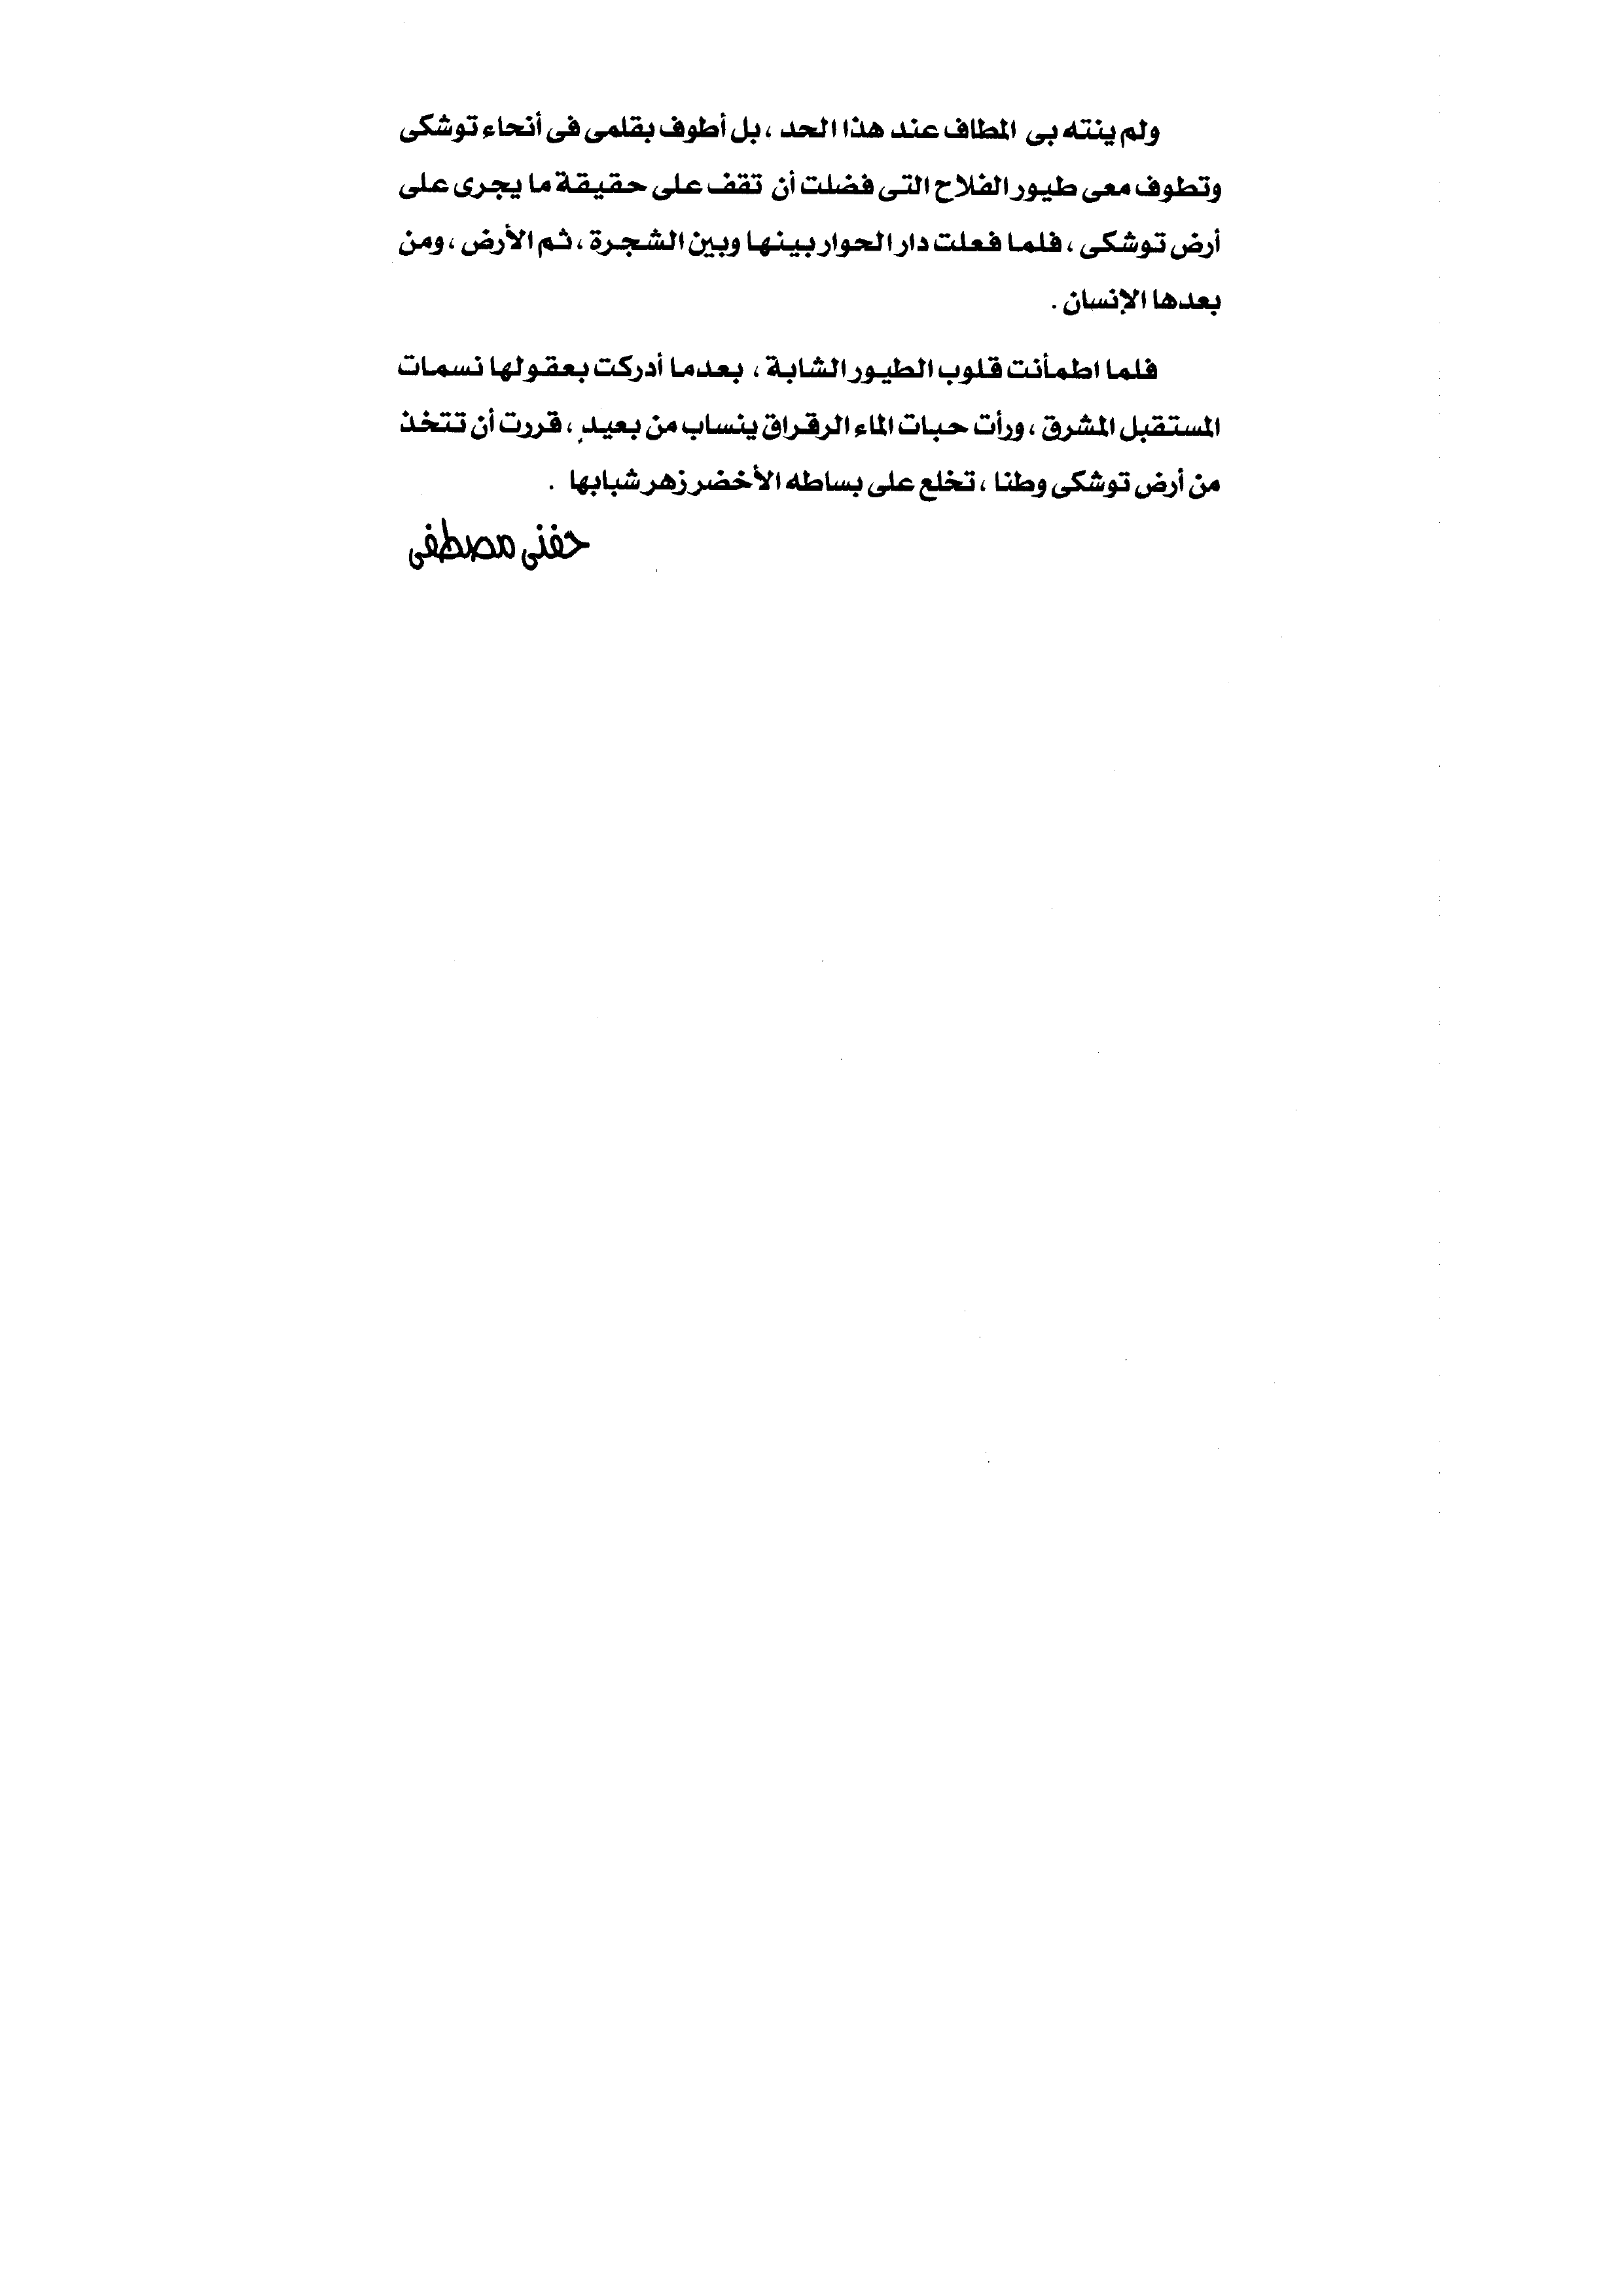 ولم ينته بى المطاف عند هذا الحد ، بل أطوف بقلمى فى أنحاء توشكى
وتطوف معى طيور الفلاح التى فضلت أن تقف على حقيقة ما يجرى على
أرض توشكى ، فلما فعلت دار الحوار بينها وبين الشجرة ، ثم الأرض ، ومن
بعدها الإنسان .
فلما اطمأنت قلوب الطيور الشابة ، بعدما أدركت بعقولها نسمات
المستقبل المشرق ، ورأت حبات الماء الرقراق ينساب من بعيدٍ ، قررت أن تتخذ
من أرض توشكى وطنا ، تخلع على بساطه الأخضر زهر شبابها .
حفنى مصطفى